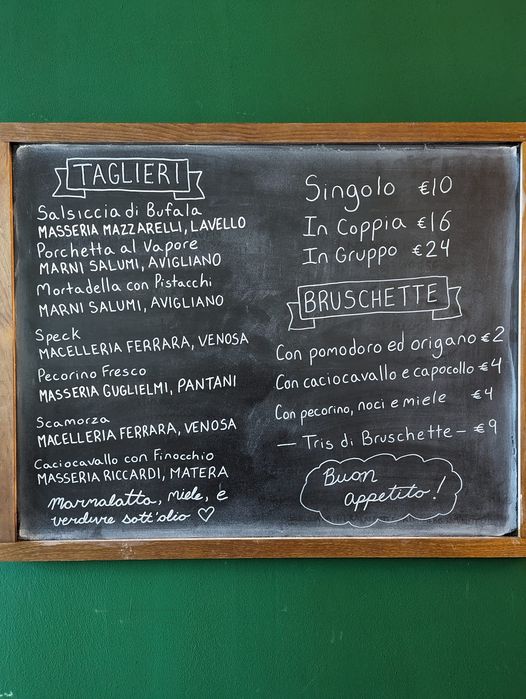 TAGLIERI
Salsiccia di Bufala
MASSERIA MAZZARELLI, LAVELLO
Porchetta al Vapore
MARNI SALUMI, AVIGLIANO
Mortadella con Pistacchi
MARNI SALUMI, AVIGLIANO
Speck
MACELLERIA FERRARA, VENOSA
Pecorino Fresco
MASSERIA GUGLIELMI, PANTANI
Scamorza
MACELLERIA FERRARA, VENOSA
Caciocavallo con Finocchio
MASSERIA RICCARDI, MATERA
Marmalatta, miele, e
verdure sott'olio ♡
Singolo €10
In Coppia €16
In Gruppo €24
BRUSCHETTE
Con pomodoro ed origano €2
Con caciocavallo e capocollo €4
Con pecorino, noci e miele €4
— Tris di Bruschette — €9
Buon
appetito!